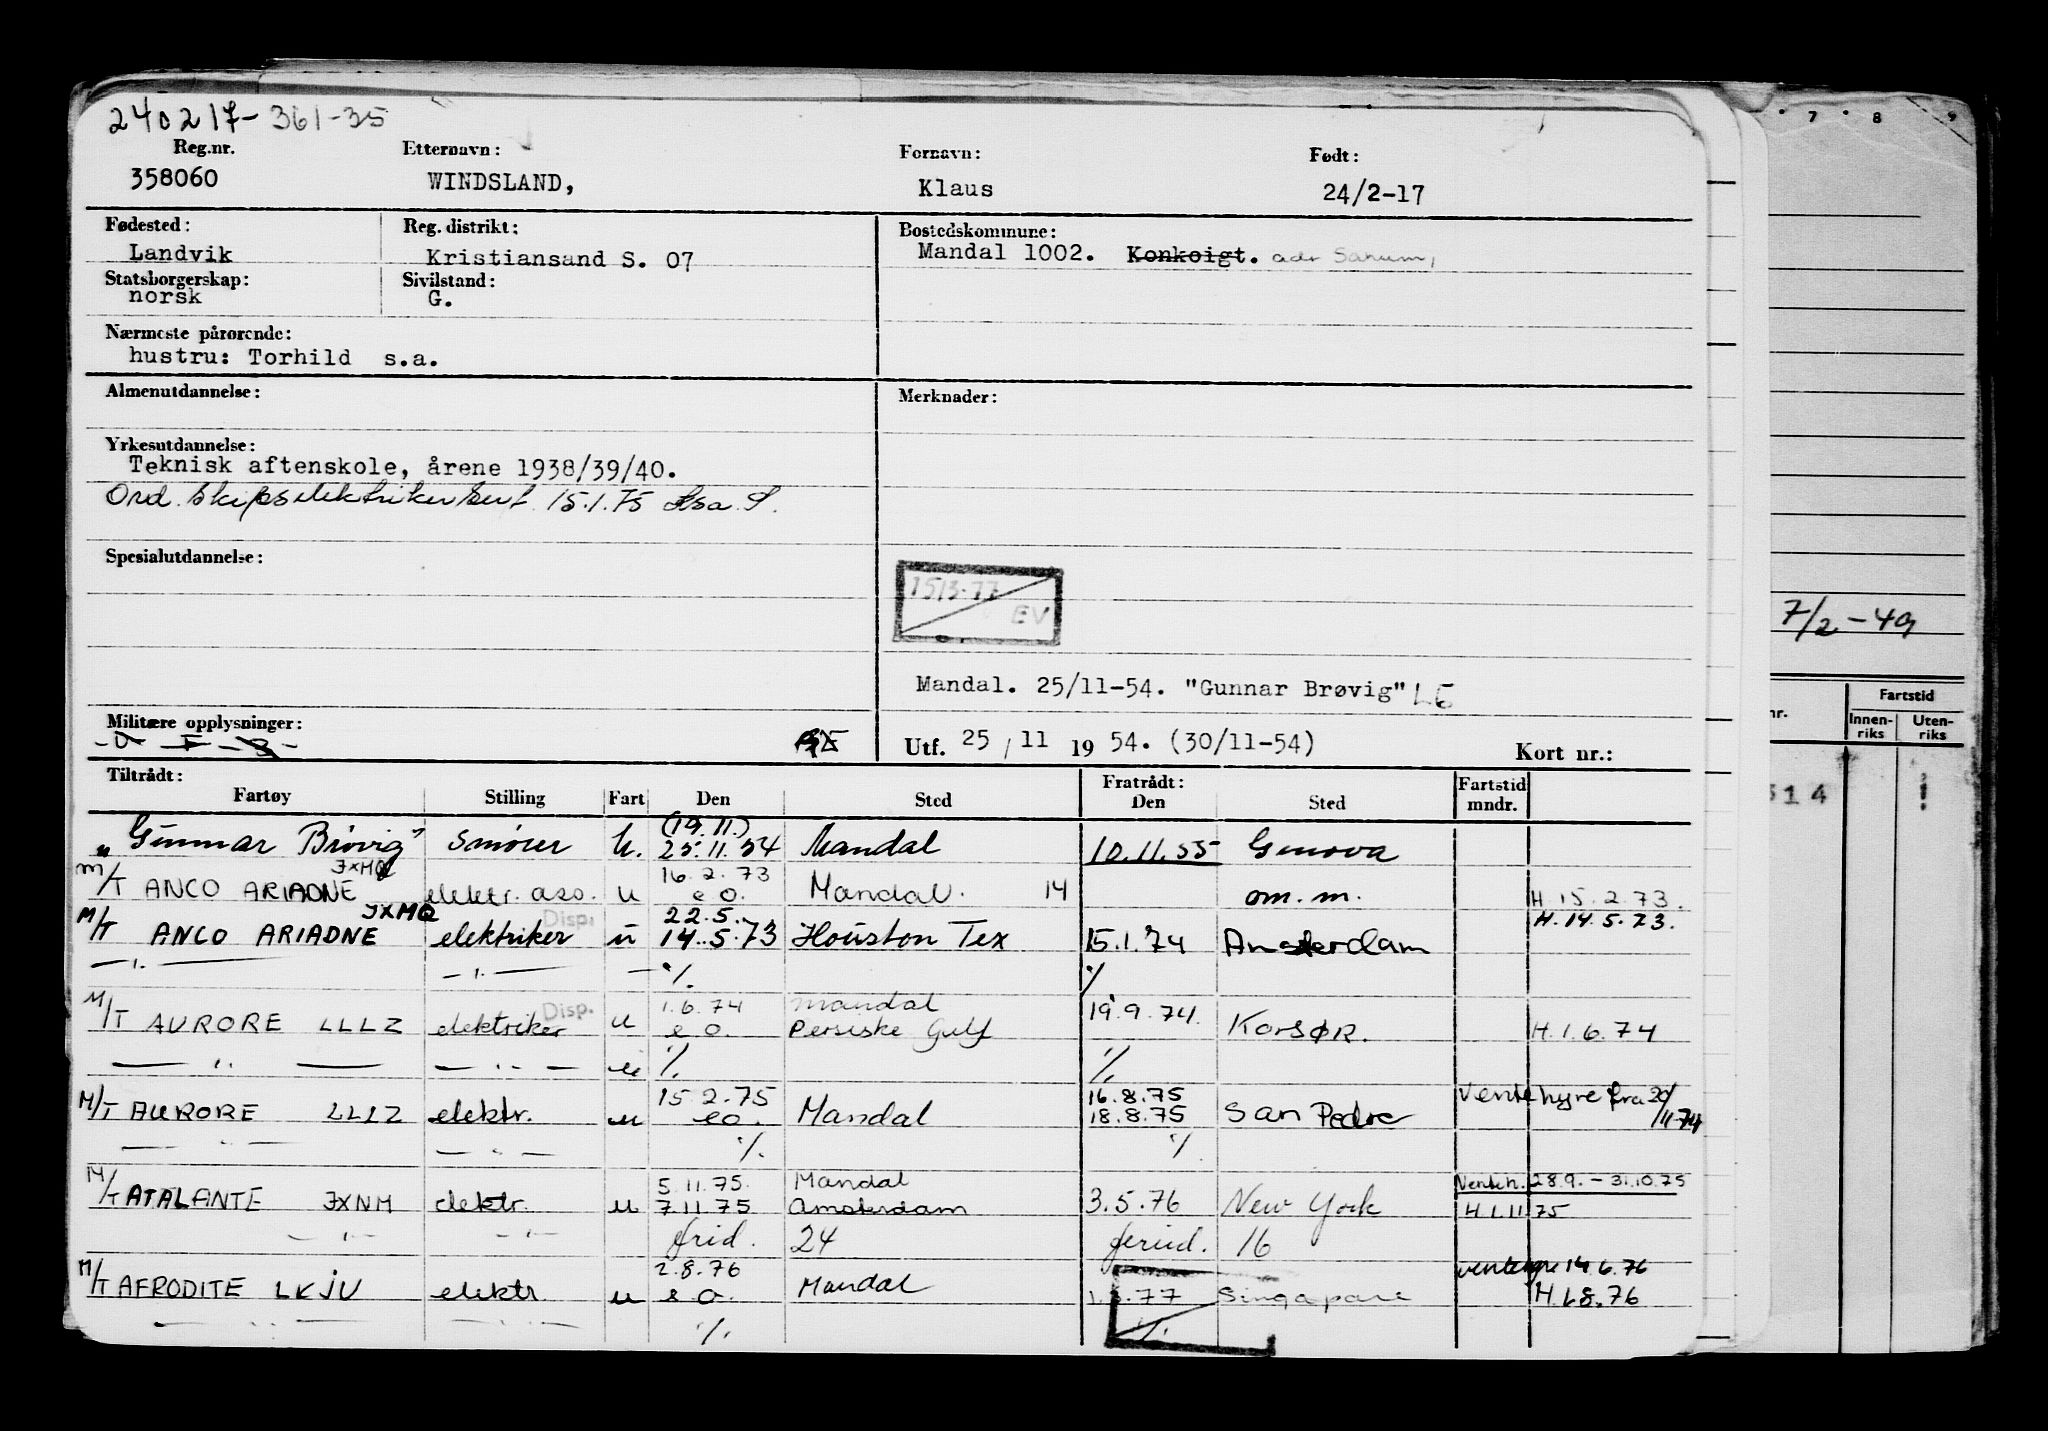 240217-361-35
Reg.nr. Etternavn: Fornavn: Født:
358060 WINDSLAND, Klaus 24/2-17
Fødested: Reg. distrikt: Bostedskommune:
Landvik Kristiansand S. 07 Mandal 1002. Konkoigt. adr
Statsborgerskap: Sivilstand:
norsk G.
Nærmeste pårørende:
hustru: Torhild s.a.
Almenutdannelse: Merknader:
Yrkesutdannelse:
Teknisk aftenskole, årene 1938/39/40.
Ord. Skipselektrikersert. 15.1.75
Spesialutdannelse:
EV
7/2-49
Mandal. 25/11-54. "Gunnar Brøvig" LE
Militære opplysninger:
Utf. 25/11 1954. (30/11-54) Kort nr.:
Innen-riks Uten-riks
Fartstid
Tiltrådt: Fratrådt: Fartstid
Fartøy Stilling Fart Den Sted Den Sted mndr.
314
(19.11.)
"Gunnar Brøvig" smører U. 25.11.54 Mandal 10.11.55 Genova
JXMQ 16.2.73
M/T ANCO ARIADNE elektr. ass. u e o. Mandal. 14 om.m. H 15.2.73.
JXMQ Disp. 22.5. H. 14.5.73.
M/T ANCO ARIADNE elektriker u 14.5.73 Houston Tex 15.1.74 Amsterdam
—"— —"— — ·/. ·/.
Disp. 1.6.74 Mandal 19.9.74.
M/T AURORE LLLZ elektriker u e o. Persiske Gulf Korsør. H.1.6.74
—"— —"— u ·/. ·/.
15.2.75 16.8.75 Ventehyre fra 20/11-74
M/T AURORE LLLZ elektr. u eo. Mandal 18.8.75 San Pedro
—"— —"— ·/. ·/.
5.11.75. Mandal Venteh. 28.9.-31.10.75
M/T ATALANTE JXNM elektr. u 7.11.75 Amsterdam 3.5.76 New York H 1.11 75
—"— —"— frid. 24 feried. 16
2.8.76 14.6.76
M/T AFRODITE LKJU elektr. u e o. Mandal Singapore H.1.8.76
—"— —"— ·/. ·/.
7 8 9